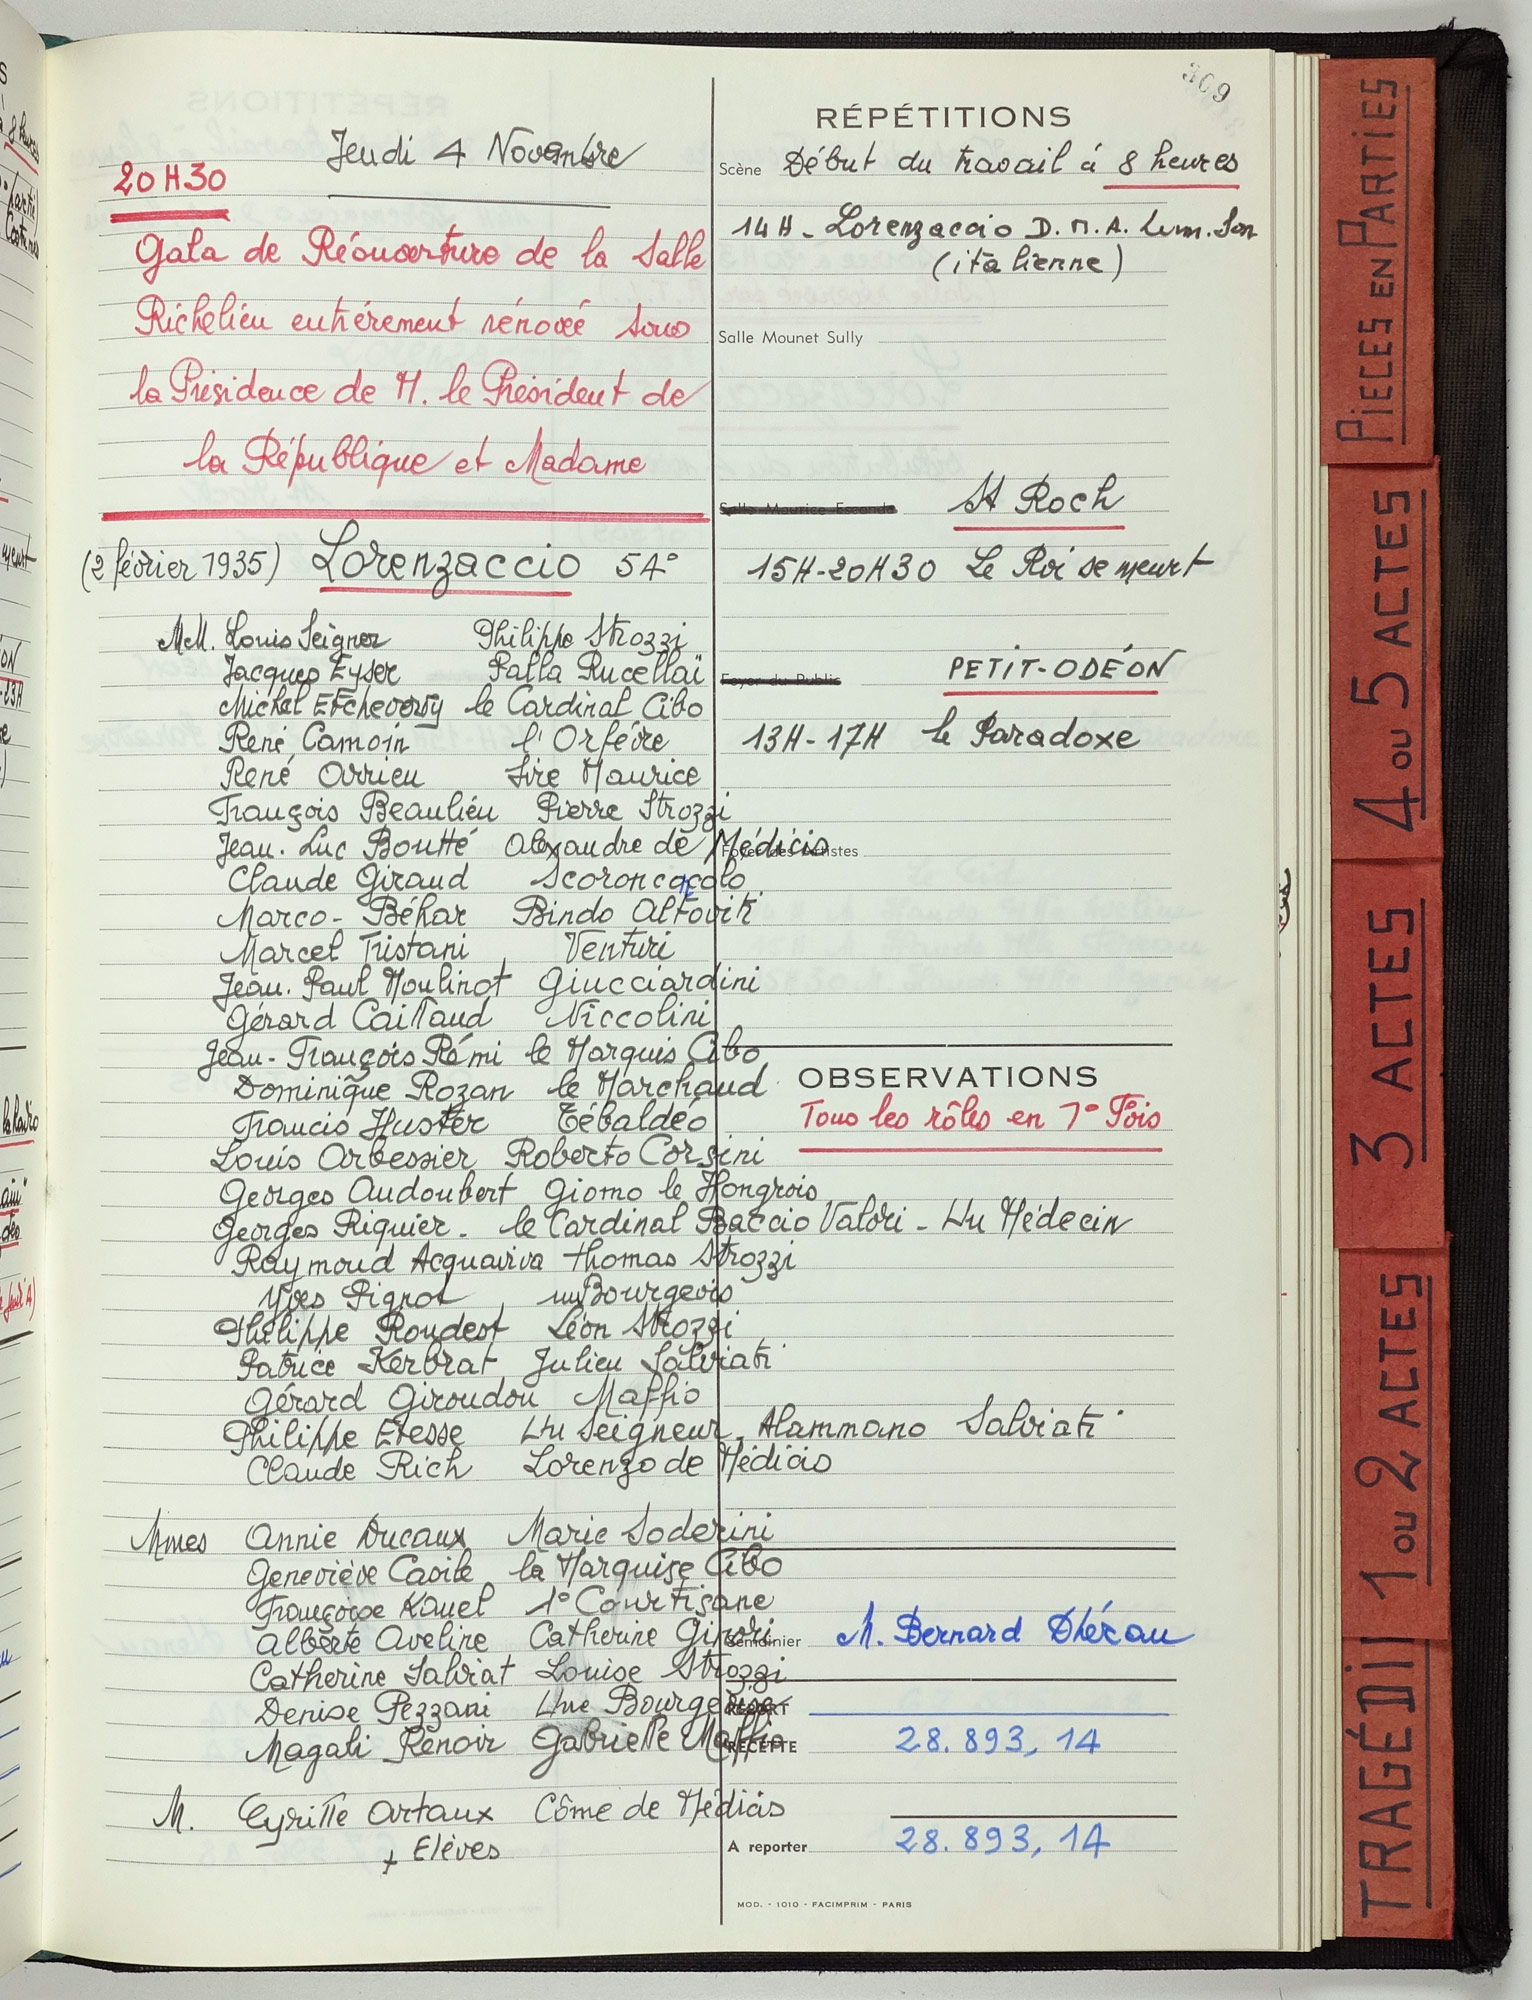 309
Jeudi 4 Novembre
20H30
Gala de Réouverture de la Salle
Richelieu entièrement rénovée sous
la Présidence de M. le Président de
la République et Madame
(2 février 1935) Lorenzaccio 54°
MM. Louis Seigner Philippe Strozzi
Jacques Eyser Palla Rucellaï
Michel Etcheverry le Cardinal Cibo
René Camoin l'Orfèvre
René Arrieu Sire Maurice
François Beaulieu Pierre Strozzi
Jean-Luc Boutté Alexandre de Médicis
Claude Giraud Scoronconcolo
Marco-Béhar Bindo Altoviti
Marcel Tristani Venturi
Jean-Paul Moulinot Giucciardini
Gérard Caillaud Niccolini
Jean-François Rémi le Marquis Cibo
Dominique Rozan le Marchand
Francis Huster Tébaldéo
Louis Arbessier Roberto Corsini
Georges Audoubert Giomo le Hongrois
Georges Riquier - le Cardinal Baccio Valori - Un Médecin
Raymond Acquaviva Thomas Strozzi
Yves Pignot un Bourgeois
Philippe Rondest Léon Strozzi
Patrice Kerbrat Julien Salviati
Gérard Giroudon Maffio
Philippe Etesse Un Seigneur - Alammano Salviati
Claude Rich Lorenzo de Médicis
Mmes Annie Ducaux Marie Soderini
Geneviève Casile la Marquise Cibo
Françoise Kanel 1° Courtisane
Alberte Aveline Catherine Ginori
Catherine Salviat Louise Strozzi
Denise Pezzani Une Bourgeoise
Magali Renoir Gabrielle Maffio
M. Cyrille Artaux Côme de Médicis
+ Elèves
RÉPÉTITIONS
Scène Début du travail à 8 heures
14H - Lorenzaccio D.M.A. Lum. Son
(italienne)
Salle Mounet Sully
Salle Maurice Escande St Roch
15H-20H30 Le Roi se meurt
Foyer du Public PETIT-ODÉON
13H-17H le Paradoxe
Foyer des Artistes
OBSERVATIONS
Tous les rôles en 1° Fois
Semainier M. Bernard Dhéran
REPORT
RECETTE 28.893,14
A reporter 28.893,14
MOD. - 1010 - FACIMPRIM - PARIS
PIECES EN PARTIES
4 OU 5 ACTES
3 ACTES
1 OU 2 ACTES